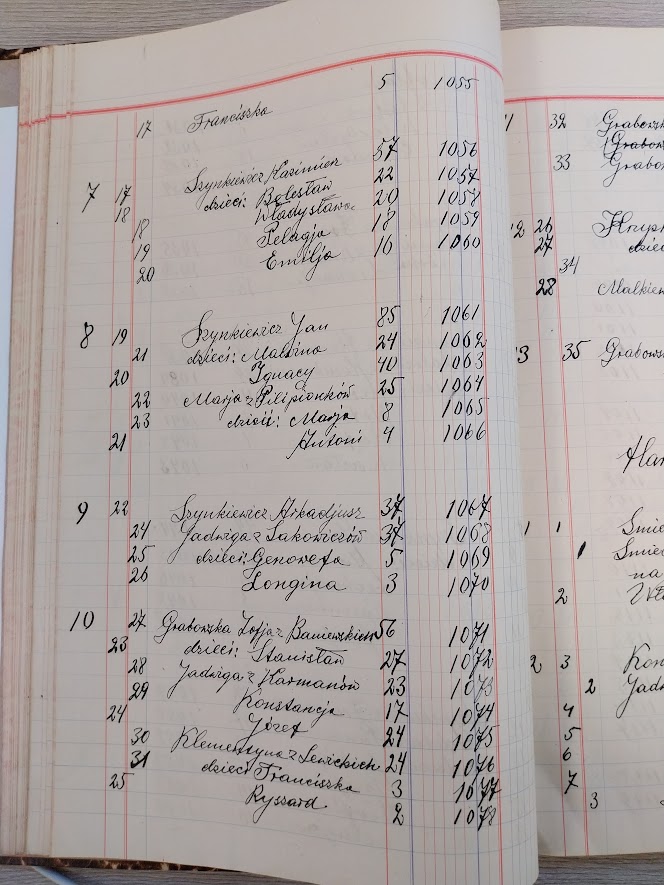 17 Franciszka 5 1055
7 17 Szynkiewicz Kazimierz 57 1056
18 dzieci: Bolesław 22 1057
Władysława 20 1058
18 Pelagja 18 1059
19 Emilja 16 1060
20
8 19 Szynkiewicz Jan 85 1061
21 dzieci: Malwina 24 1062
20 Ignacy 40 1063
22 Marja z Pilipionków 25 1064
23 dzieci: Marja 8 1065
21 Antoni 4 1066
9 22 Szynkiewicz Arkadjusz 37 1067
24 Jadwiga z Sakowiczów 37 1068
25 dzieci: Genowefa 5 1069
26 Longina 3 1070
10 27 Grabowska Zofja z Baniewskich 56 1071
23 dzieci: Stanisław 27 1072
28 Jadwiga z Harmanów 23 1073
29 Konstancja 17 1074
24 Józef 21 1075
30 Klementyna z Lewickich 24 1076
31 dzieci Franciszka 3 1077
25 Ryszard 2 1078
32 Grabowsk
(Grabow
33 Grabow
12 26
27 dziec
34
28 Malkiew
13 35 Grabows
1 1
na
2
2 3
2 Jad
4
5
6
7
3